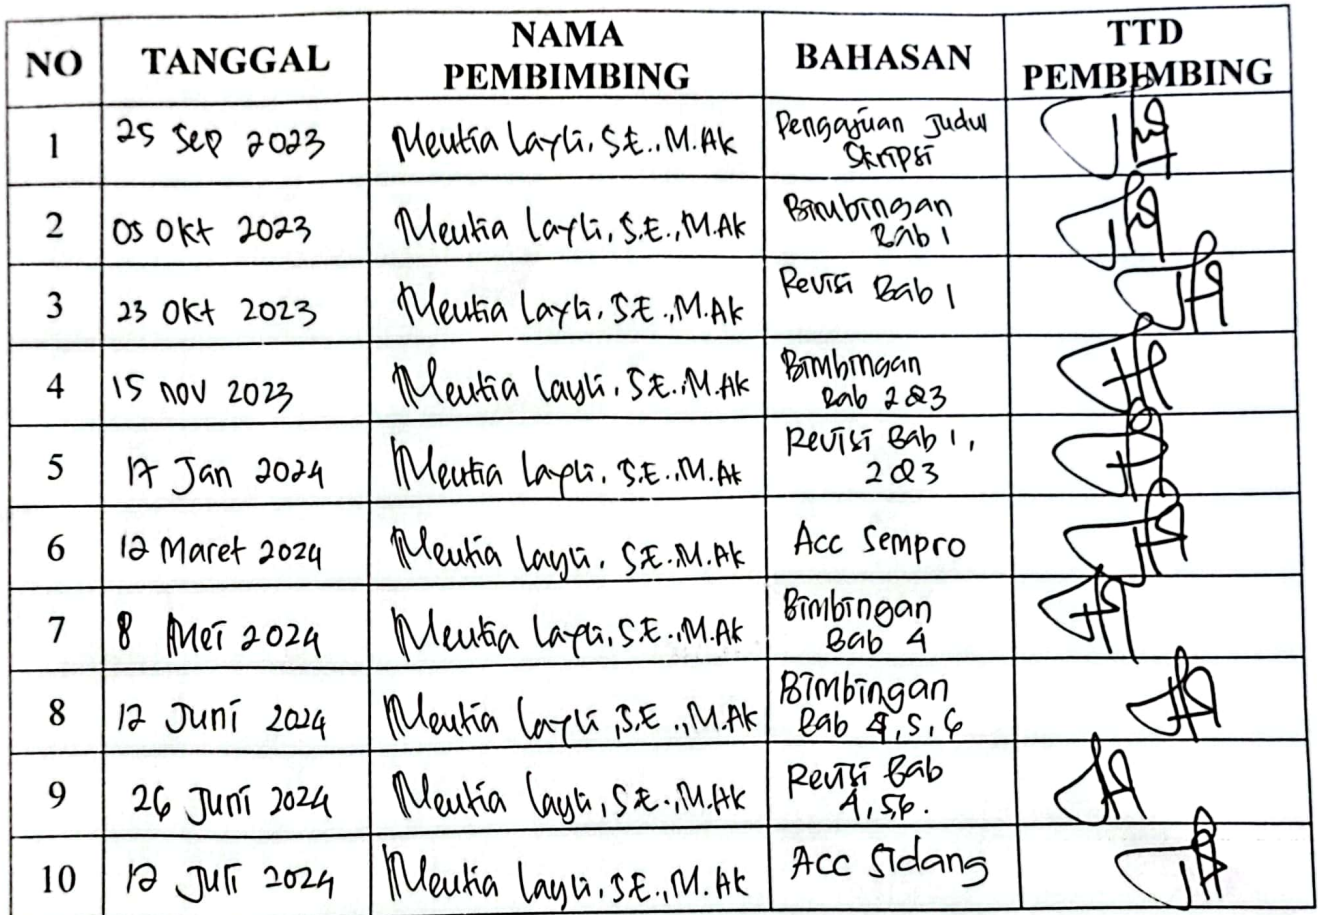 NO TANGGAL NAMA PEMBIMBING BAHASAN TTD PEMBIMBING
1 25 Sep 2023 Meutia Layli, S.E., M.Ak Pengajuan Judul Skripsi
2 05 Okt 2023 Meutia Layli, S.E., M.Ak Bimbingan Bab 1
3 23 Okt 2023 Meutia Layli, S.E., M.Ak Revisi Bab 1
4 15 nov 2023 Meutia Layli, S.E., M.Ak Bimbingan Bab 2 & 3
5 17 Jan 2024 Meutia Layli, S.E., M.Ak Revisi Bab 1, 2 & 3
6 12 Maret 2024 Meutia Layli, S.E., M.Ak Acc Sempro
7 8 Mei 2024 Meutia Layli, S.E., M.Ak Bimbingan Bab 4
8 12 Juni 2024 Meutia Layli, S.E., M.Ak Bimbingan Bab 4, 5, 6
9 26 Juni 2024 Meutia Layli, S.E., M.Ak Revisi Bab 4, 5, 6.
10 12 Juli 2024 Meutia Layli, S.E., M.Ak Acc Sidang